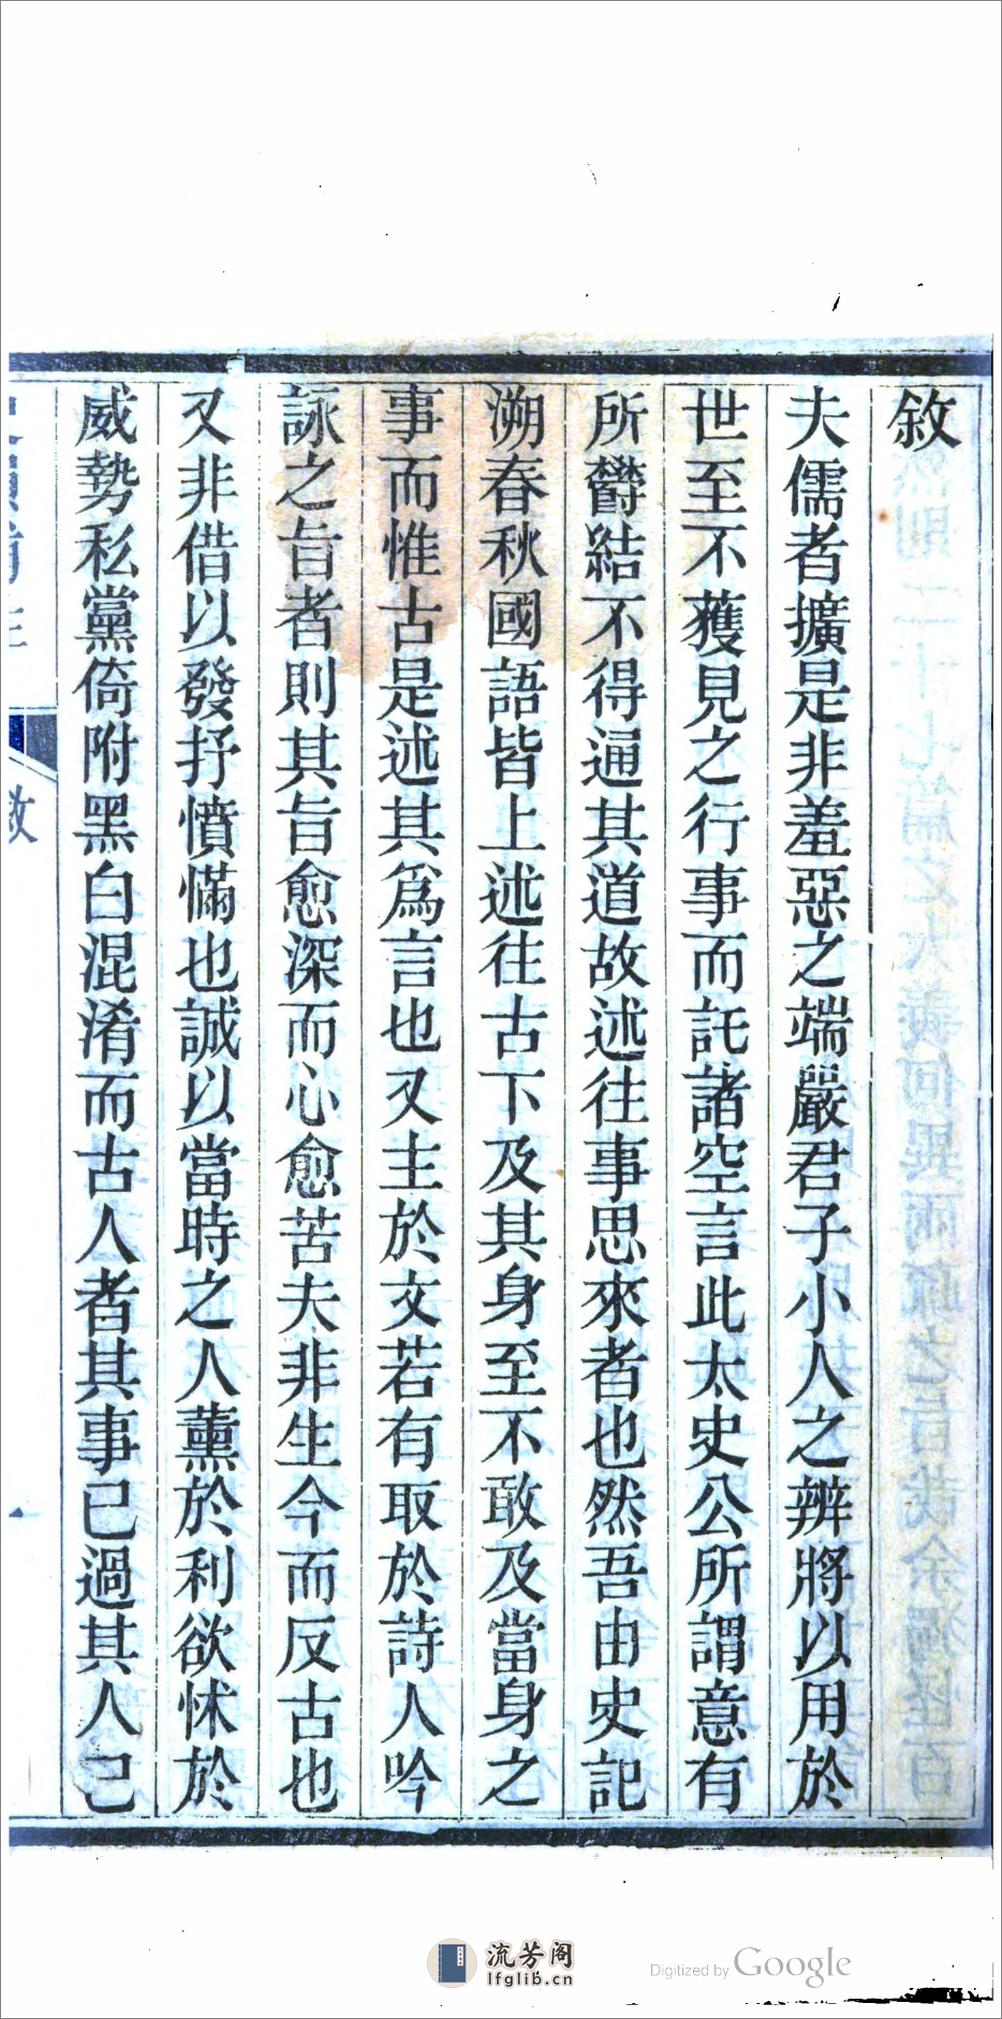 敘
夫儒者擴是非羞惡之端嚴君子小人之辨將以用於
世至不獲見之行事而託諸空言此太史公所謂意有
所鬱結不得通其道故述往事思來者也然吾由史記
溯春秋國語皆上述往古下及其身至不敢及當身之
事而惟古是述其爲言也又主於文若有取於詩人吟
詠之旨者則其旨愈深而心愈苦夫非生今而反古也
又非借以發抒憤懣也誠以當時之人薰於利欲怵於
威勢私黨倚附黑白混淆而古人者其事已過其人已
敘
一
流芳阁
lfglib.cn
Digitized by Google